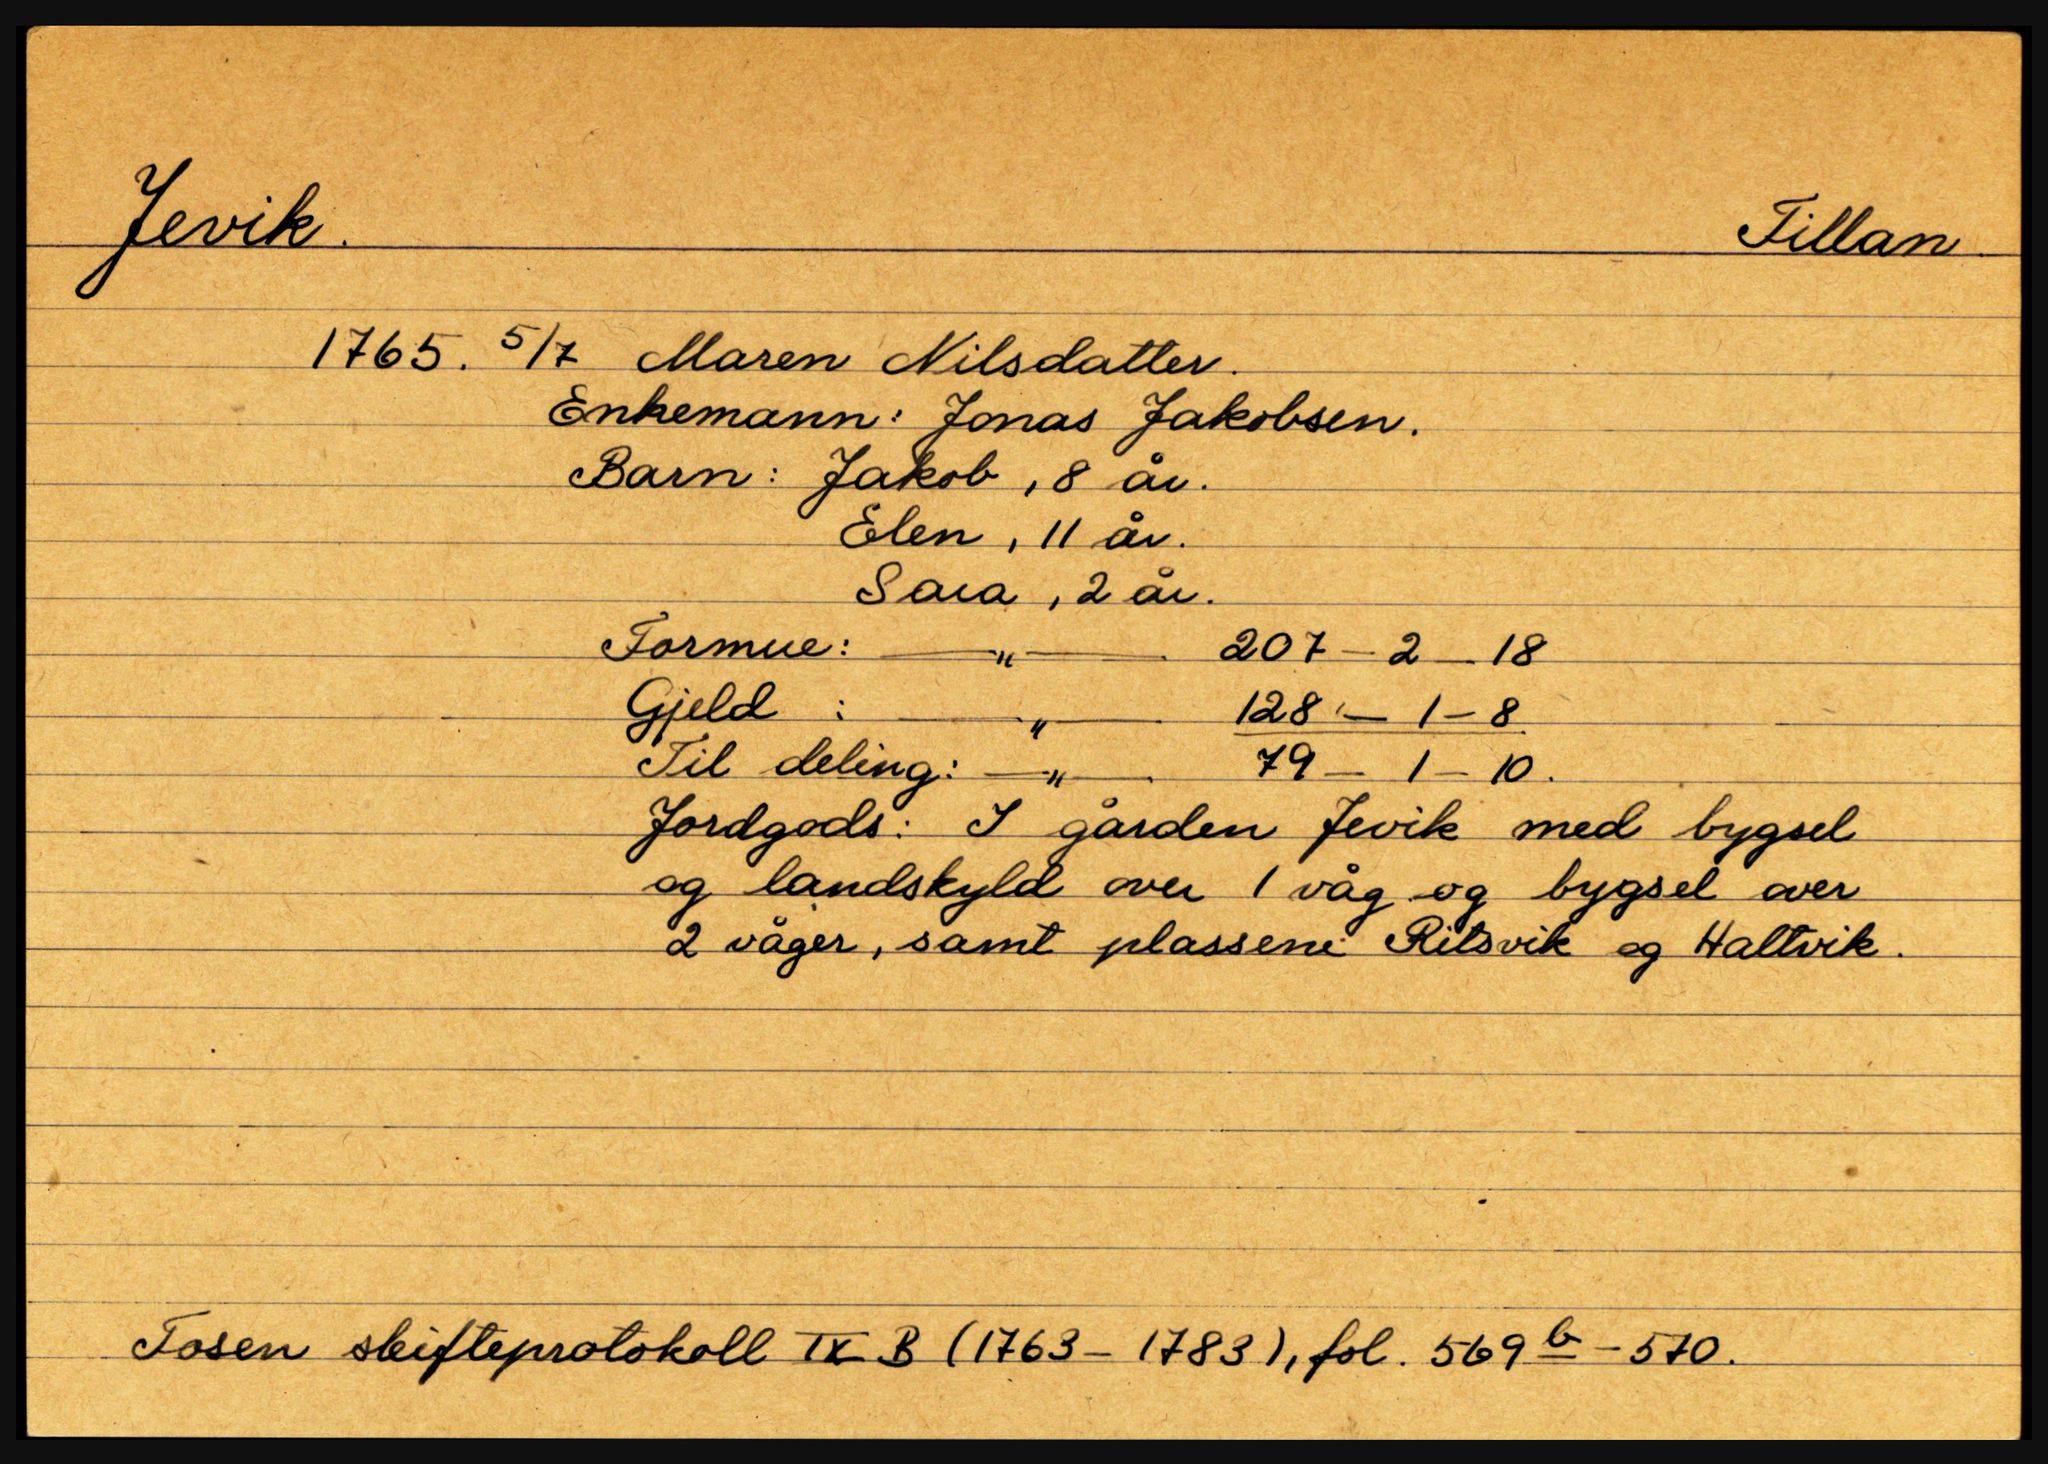 Jevik. Fillan.
1765. 5/7 Maren Nilsdatter.
Enkemann: Jonas Jakobsen.
Barn: Jakob, 8 år.
Elen, 11 år.
Sara, 2 år.
Formue: —"— 207 - 2 - 18
Gjeld : —"— 128 - 1 - 8
Til deling: —"— 79 - 1 - 10.
Jordgods: I gården Jevik med bygsel
og landskyld over 1 våg og bygsel over
2 våger, samt plassene Ritsvik og Haltvik.
Fosen skifteprotokoll IX B (1763-1783), fol. 569 b - 570.